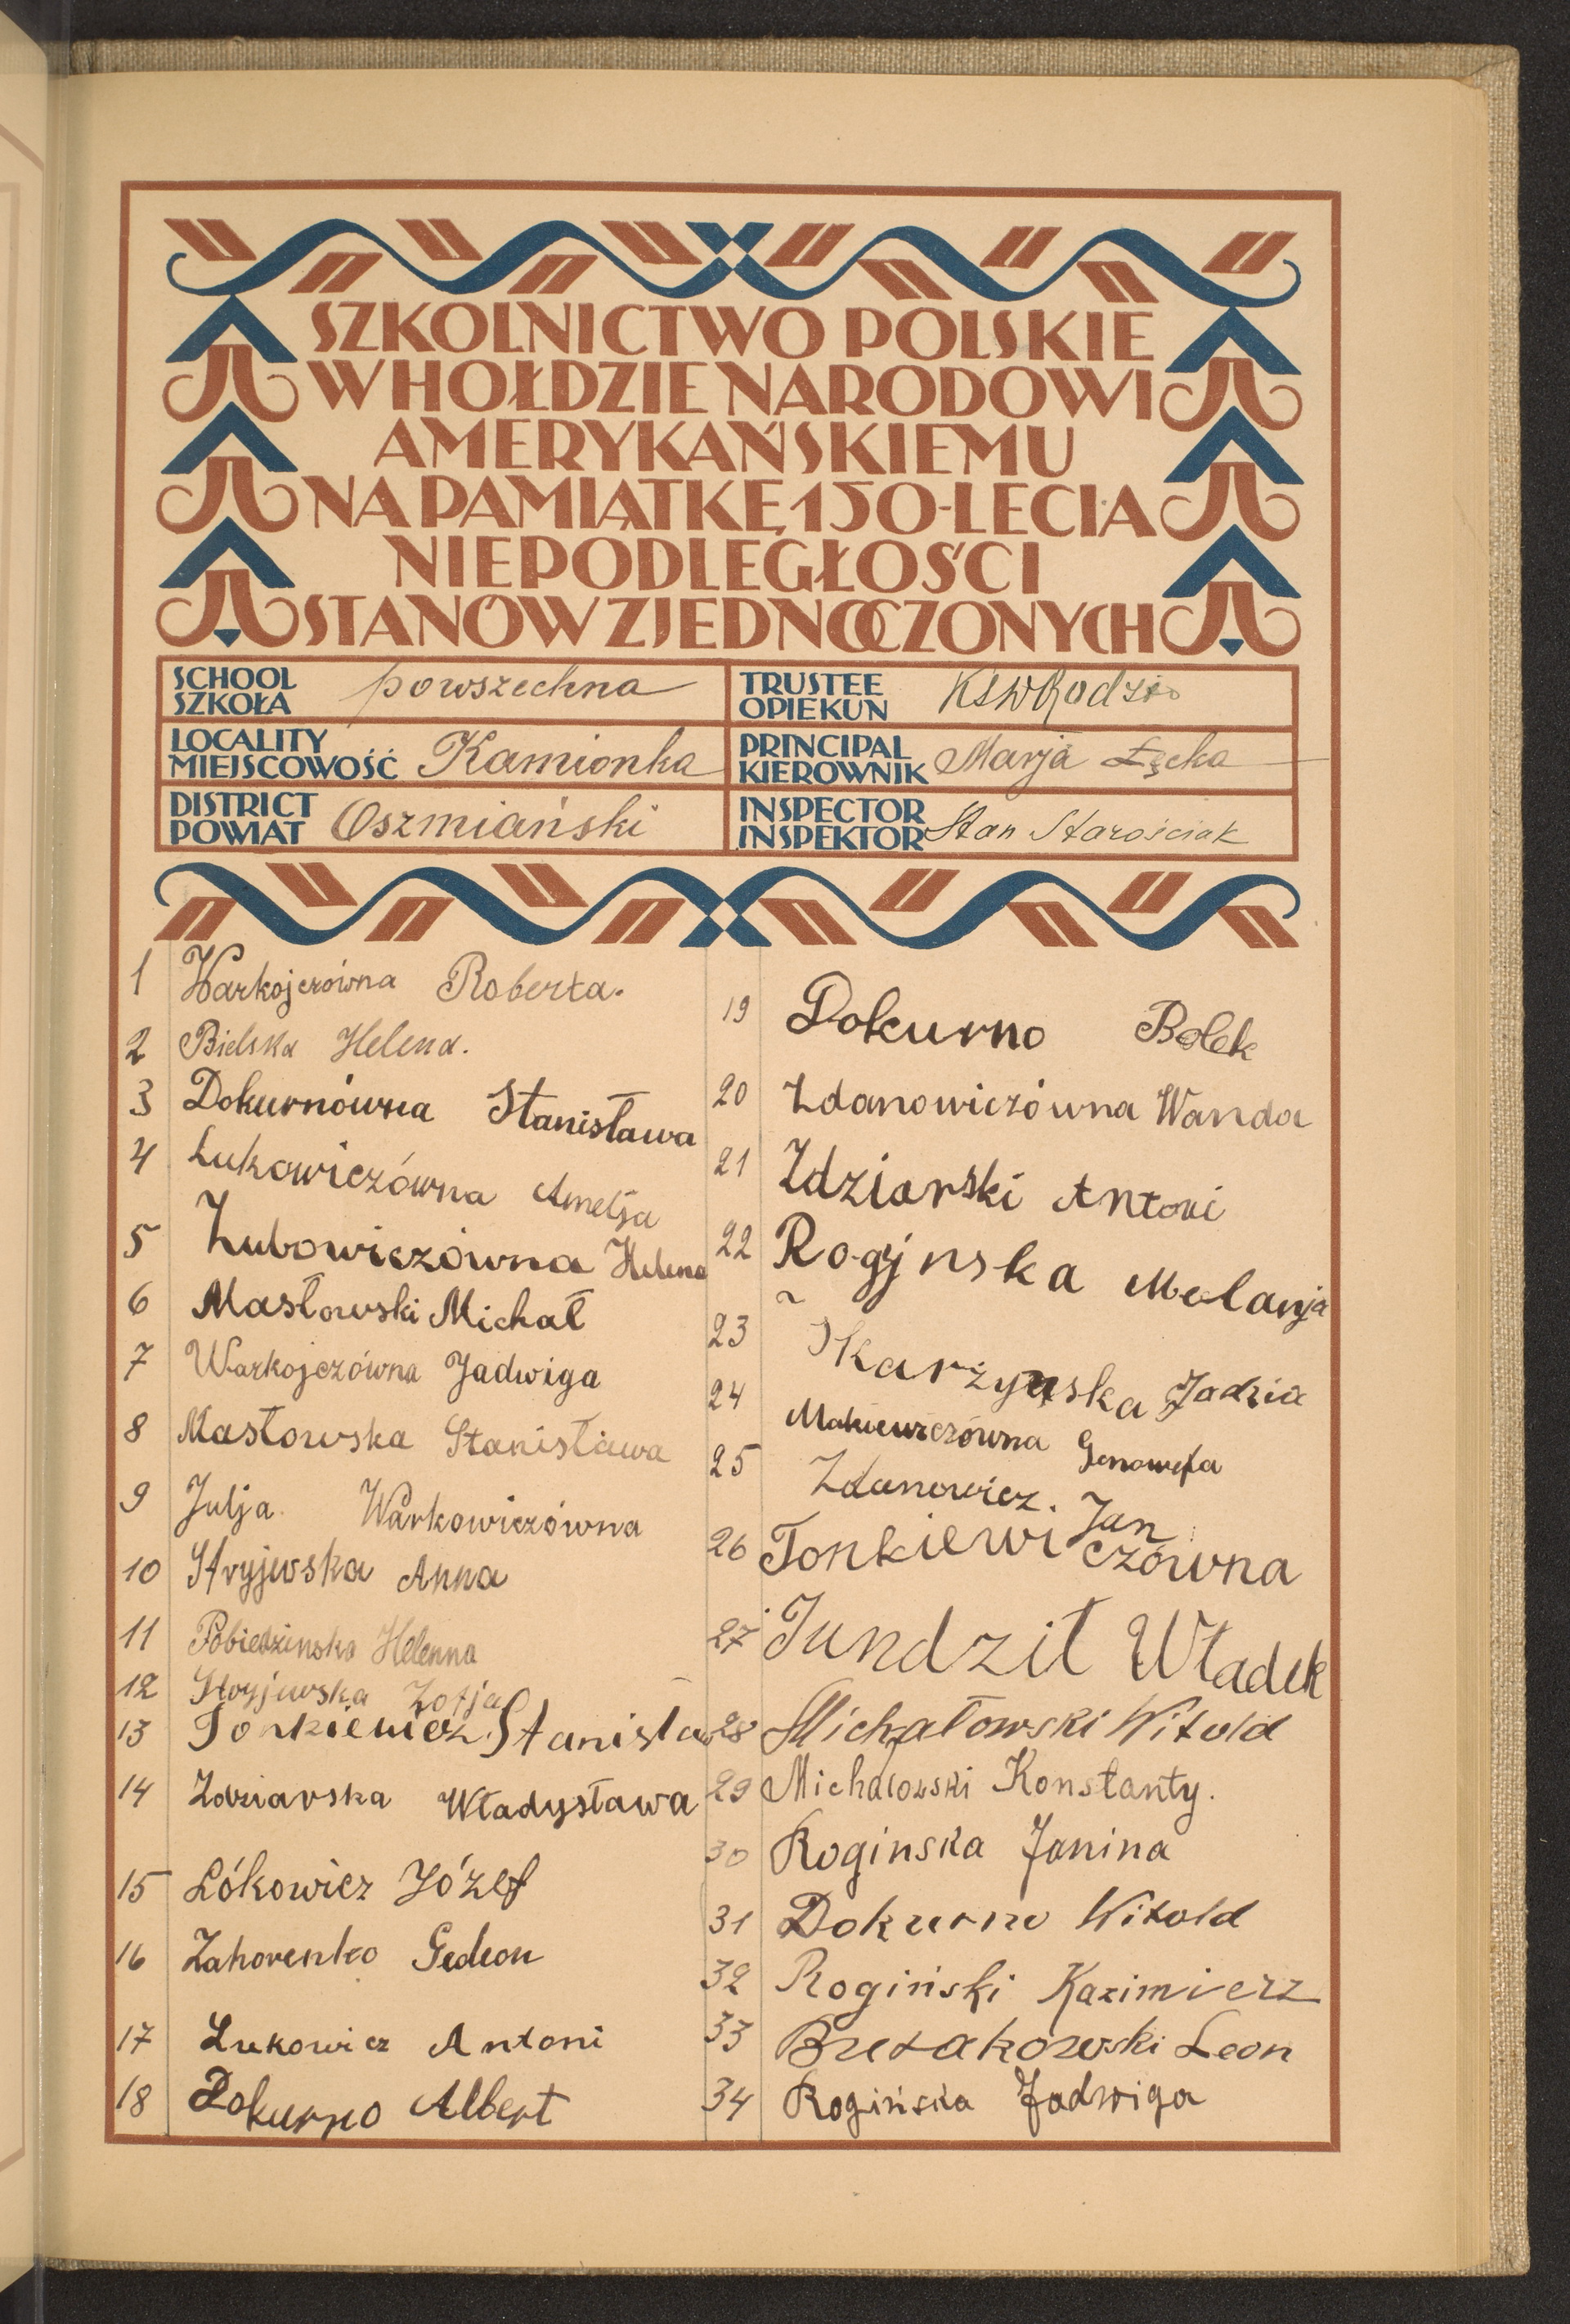 SZKOLNICTWO POLSKIE
W HOŁDZIE NARODOWI
AMERYKAŃSKIEMU
NA PAMIĄTKĘ 150-LECIA
NIEPODLEGŁOŚCI
STANÓW ZJEDNOCZONYCH
SCHOOL SZKOŁA powszechna
TRUSTEE OPIEKUN
LOCALITY MIEJSCOWOŚĆ Kamionka
PRINCIPAL KIEROWNIK Marja Łęcka
DISTRICT POWIAT Oszmiański
INSPECTOR INSPEKTOR Stan Starościak
1 Warkojczówna Roberta.
2 Bielska Helena.
3 Dokurnówna Stanisława
4 Lukowiczówna Amelja
5 Lubowiczówna Helena
6 Masłowski Michał
7 Warkojczówna Jadwiga
8 Masłowska Stanisława
9 Julja Warkowiczówna
10 Stryjewska Anna
11 Pobiedzinska Helenna
12 Stryjewska Zofja
13 Tonkiewicz Stanisław
14 Zdziarska Władysława
15 Lókowicz Józef
16 Zahorenko Gedeon
17 Lukowicz Antoni
18 Dokurno Albert
19 Dokurno Bolek
20 Zdanowiczówna Wanda
21 Zdziarski Antoni
22 Rogjnska Melanja
23 Skarzynska Jadzia
24 Makiewiczówna Genowefa
25 Zdanowicz. Jan
26 Tonkiewiczówna
27 Jundził Władek
28 Michałowski Witold
29 Michałowski Konstanty.
30 Roginska Janina
31 Dokurno Witold
32 Rogiński Kazimierz
33 Leon
34 Rogińska Jadwiga